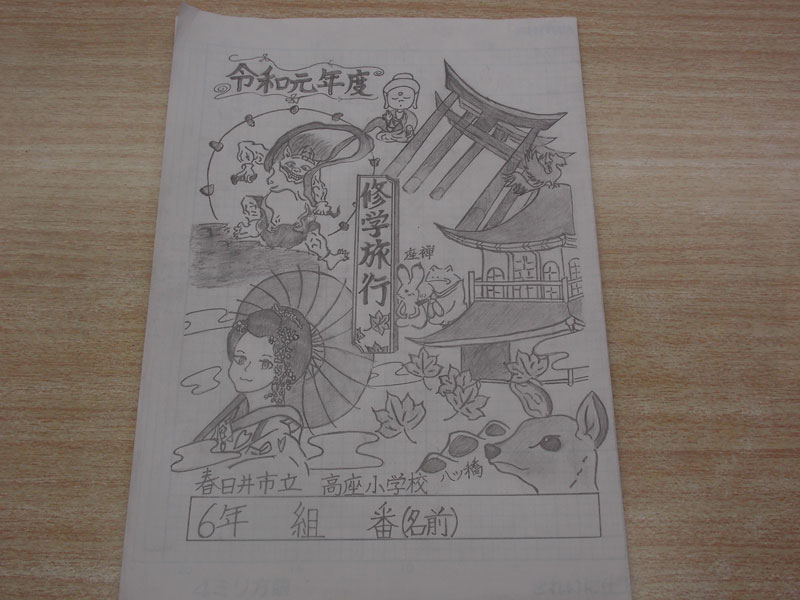 令和元年度
修学旅行
座禅
八ツ橋
春日井市立 高座小学校
6年 組 番(名前)